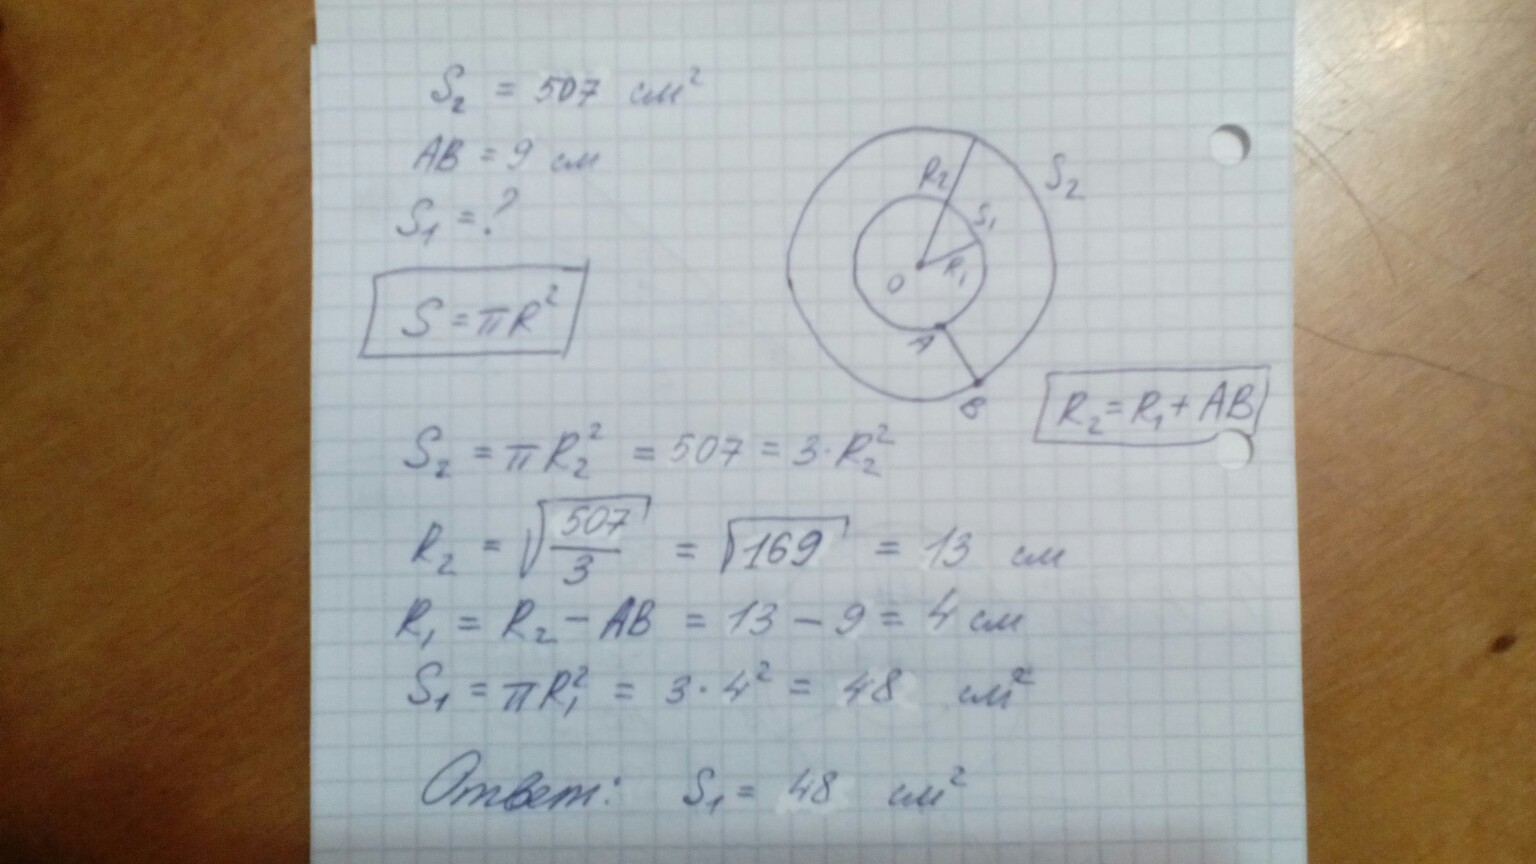 S₂ = 507 см²
AB = 9 см
S₁ = ?
S = πR²
R₂
S₂
S₁
R₁
O
A
B
R₂ = R₁ + AB
S₂ = πR₂² = 507 = 3·R₂²
R₂ = √(507/3) = √169 = 13 см
R₁ = R₂ − AB = 13 − 9 = 4 см
S₁ = πR₁² = 3·4² = 48 см²
Ответ: S₁ = 48 см²